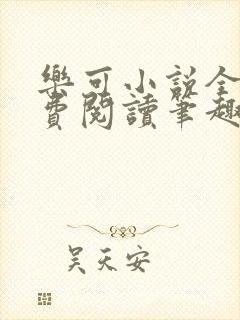 樂可小說全
費閱讀筆趣
吴天安